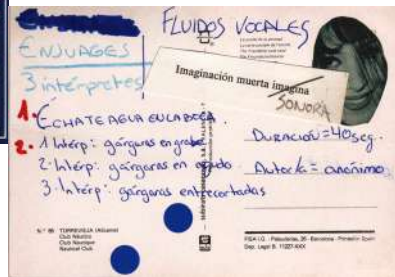 FLUIDOS VOCALES
ENJUAGES
3 intérpretes
Imaginación muerta imagina
SONORA
1. ECHATE AGUA EN LA BOCA.
2. 1 Intérp: gárgaras en grave
2. Intérp: gárgaras en agudo
3. Intérp: gárgaras entrecortadas
DURACIÓN = 40 seg.
Autor/a = anónimo
N.º 86 TORREVIEJA (Alicante)
Club Náutico
Club Nautique
Nautical Club
FISA I.G. - Palaudarias, 26 - Barcelona - Printed in Spain
Dep. Legal B. 11227-XXV